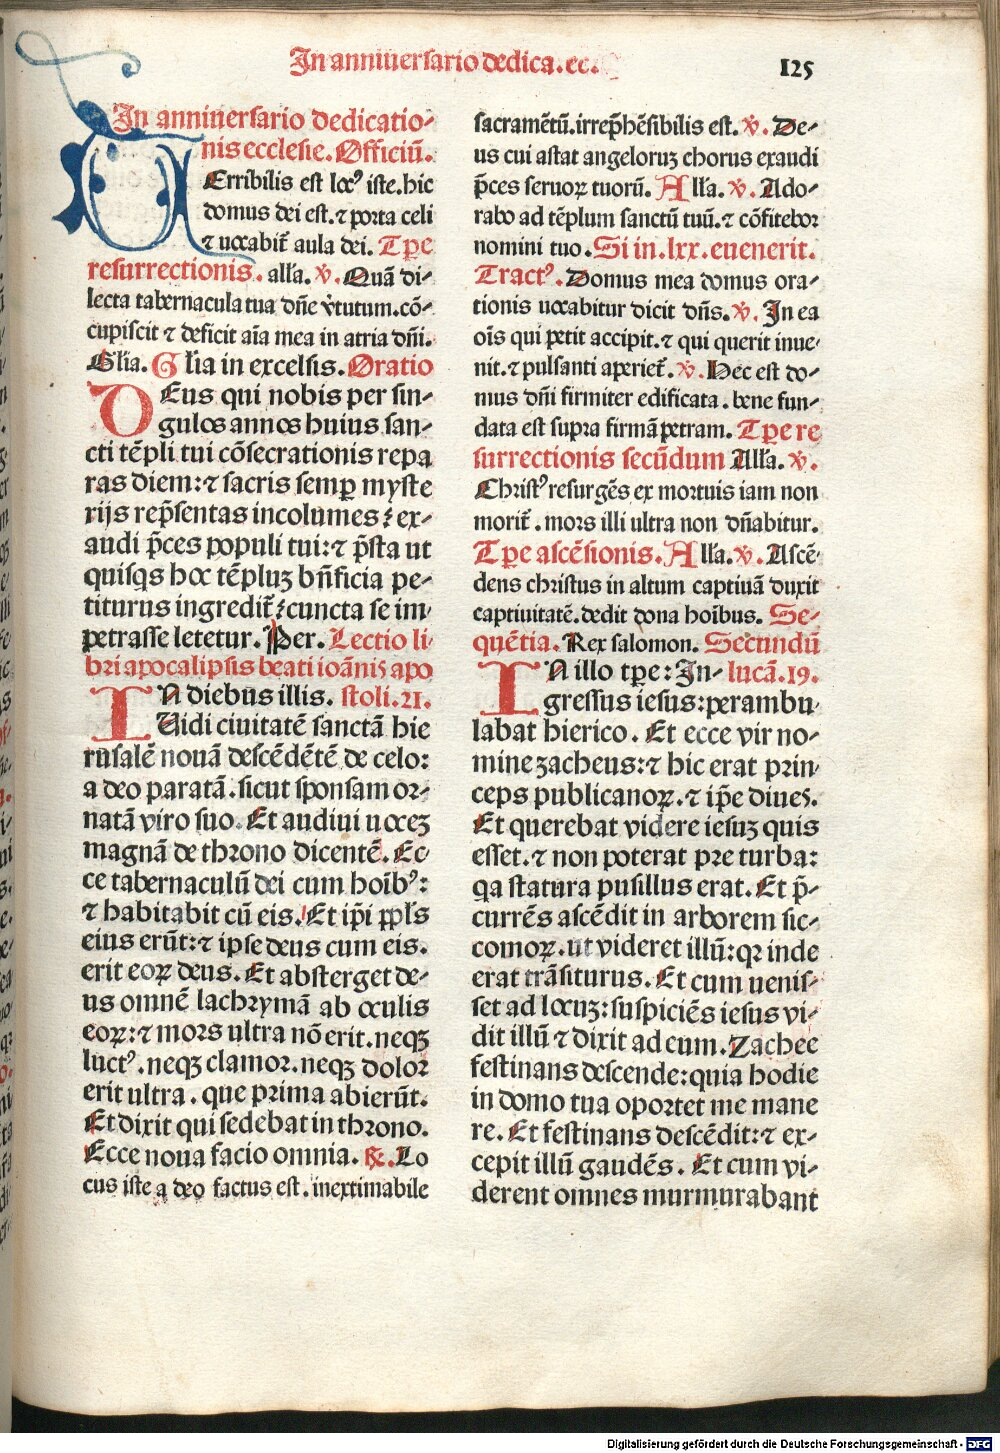 In anniuersario dedica. ec.
125
In anniuersario dedicatio-
nis ecclesie. Officiũ.
TErribilis est locꝰ iste. hic
domus dei est. ⁊ porta celi
⁊ uocabit̃ aula dei. Tp̃e
resurrectionis. alľa. ℣. Quã di-
lecta tabernacula tua dñe v̓tutum. cõ-
cupiscit ⁊ deficit aĩa mea in atria dñi.
Gľia. Gľia in excelsis. Oratio
DEus qui nobis per sin-
gulos annos huius san-
cti tẽpli tui cõsecrationis repa
ras diem: ⁊ sacris semꝑ myste
rijs rep̃sentas incolumes: ex-
audi p̃ces populi tui: ⁊ p̃sta ut
quisqs hoc tẽpluʒ bñficia pe-
titurus ingredit̃: cuncta se im-
petrasse letetur. Per. Lectio li-
bri apocalipsis beati ioãnis apo
IN diebus illis. stoli. 21.
Uidi ciuitatẽ sanctã hie
rusalẽ nouã descẽdẽtẽ de celo:
a deo paratã. sicut sponsam or-
natã viro suo. Et audiui uoceʒ
magnã de throno dicentẽ. Ec-
ce tabernaculũ dei cum hoĩbꝰ:
⁊ habitabit cũ eis. Et ip̃i ppľs
eius erũt: ⁊ ipse deus cum eis.
erit eoꝝ deus. Et absterget de-
us omnẽ lachrymã ab oculis
eoꝝ: ⁊ mors ultra nõ erit. neqʒ
luctꝰ. neqʒ clamor. neqʒ dolor
erit ultra. que prima abierũt.
Et dixit qui sedebat in throno.
Ecce noua facio omnia. ℟. Lo
cus iste a deo factus est. inextimabile
sacramẽtũ. irrep̃hẽsibilis est. ℣. De-
us cui astat angeloruʒ chorus exaudi
p̃ces seruoꝝ tuorũ. Alľa. ℣. Ado-
rabo ad tẽplum sanctũ tuũ. ⁊ cõfitebor
nomini tuo. Si in. lxx. euenerit.
Tractꝰ. Domus mea domus ora-
tionis uocabitur dicit dñs. ℣. In ea
oĩs qui petit accipit. ⁊ qui querit inue-
nit. ⁊ pulsanti aperiet̃. ℣. Hec est do-
mus dñi firmiter edificata. bene fun-
data est supra firmã petram. Tp̃e re
surrectionis secũdum Alľa. ℣.
Christꝰ resurgẽs ex mortuis iam non
morit̃. mors illi ultra non dñabitur.
Tp̃e ascẽsionis. Alľa. ℣. Ascẽ-
dens christus in altum captiuã duxit
captiuitatẽ. dedit dona hoĩbus. Se-
quẽtia. Rex salomon. Secundũ
IN illo tp̃e: In- lucã. 19.
gressus iesus: perambu-
labat hierico. Et ecce vir no-
mine zacheus: ⁊ hic erat prin-
ceps publicanoꝝ. ⁊ ip̃e diues.
Et querebat videre iesuʒ quis
esset. ⁊ non poterat pre turba:
qa statura pusillus erat. Et p̃-
currẽs ascẽdit in arborem sic-
comoꝝ. ut videret illũ: qꝛ inde
erat trãsiturus. Et cum uenis-
set ad locuʒ: suspiciẽs iesus vi-
dit illũ ⁊ dixit ad eum. Zachee
festinans descende: quia hodie
in domo tua oportet me mane
re. Et festinans descẽdit: ⁊ ex-
cepit illũ gaudẽs. Et cum vi-
derent omnes murmurabant
Digitalisierung gefördert durch die Deutsche Forschungsgemeinschaft - DFG